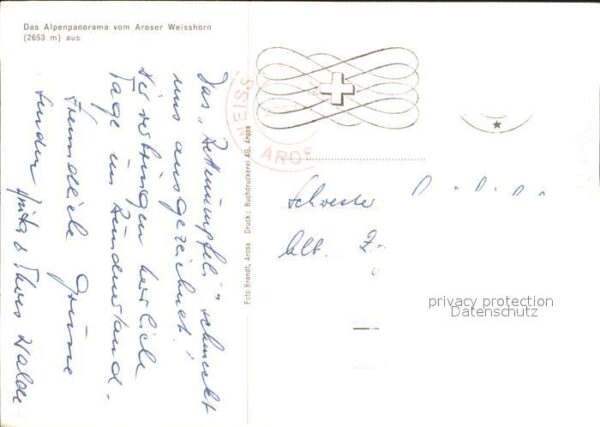 Das Alpenpanorama vom Aroser Weisshorn
(2653 m) aus
Das "Bettmümpfeli" schmeckt
uns ausgezeichnet!
Wir verbringen herrliche
Tage im Bündnerland.
Freundliche Grüsse
senden Anita & Thres Walder
Foto Brandt, Arosa Druck: Buchdruckerei AG, Arosa
WEISS
AROS
Schwester
Abt.
privacy protection
Datenschutz